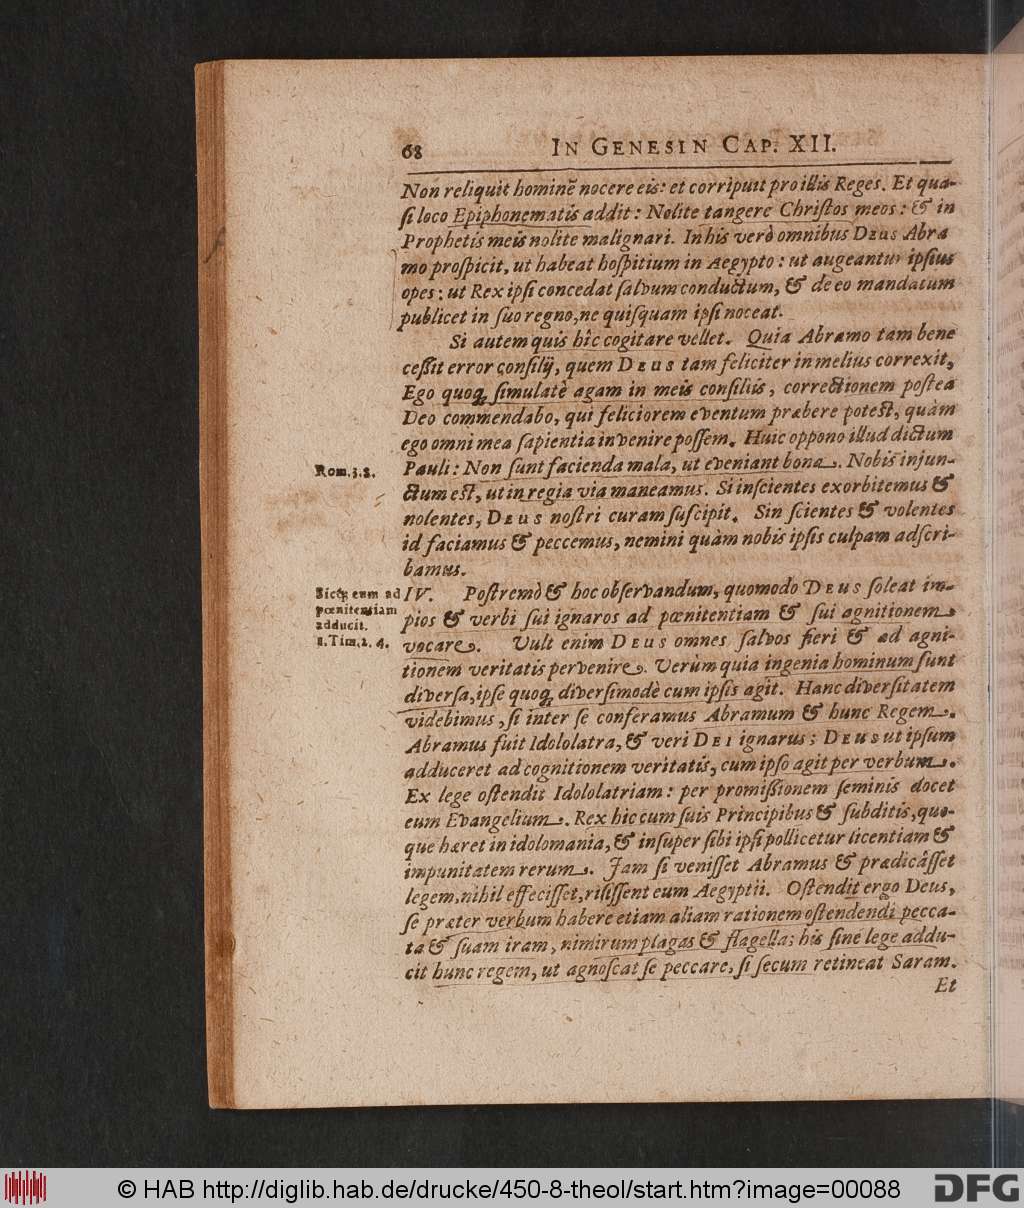 68 IN GENESIN CAP. XII.
Non reliquit hominē nocere eis: et corripuit pro illis Reges. Et qua-
ſi loco Epiphonematis addit: Nolite tangere Chriſtos meos: & in
Prophetis meis nolite malignari. In his verò omnibus DEUS Abra
mo proſpicit, ut habeat hoſpitium in Aegypto: ut augeantur ipſius
opes: ut Rex ipſi concedat ſalvum conductum, & de eo mandatum
publicet in ſuo regno, ne quiſquam ipſi noceat.
Si autem quis hîc cogitare vellet. Quia Abramo tam bene
ceſſit error conſilij, quem DEUS tam feliciter in melius correxit,
Ego quoq; ſimulatè agam in meis conſiliis, correctionem poſtea
Deo commendabo, qui feliciorem eventum præbere poteſt, quàm
ego omni mea ſapientia invenire poſſem. Huic oppono illud dictum
Rom. 3. 8.
Pauli: Non ſunt facienda mala, ut eveniant bona. Nobis injun-
ctum eſt, ut in regia via maneamus. Si inſcientes exorbitemus &
nolentes, DEUS noſtri curam ſuſcipit. Sin ſcientes & volentes
id faciamus & peccemus, nemini quàm nobis ipſis culpam adſcri-
bamus.
Sicq; eum ad
pœnitentiam
adducit.
1. Tim. 2. 4.
IV. Poſtremò & hoc obſervandum, quomodo DEUS ſoleat im-
pios & verbi ſui ignaros ad pœnitentiam & ſui agnitionem
vocare. Vult enim DEUS omnes ſalvos fieri & ad agni-
tionem veritatis pervenire. Verùm quia ingenia hominum ſunt
diverſa, ipſe quoq; diverſimodè cum ipſis agit. Hanc diverſitatem
videbimus, ſi inter ſe conferamus Abramum & hunc Regem.
Abramus fuit Idololatra, & veri DEI ignarus; DEUS ut ipſum
adduceret ad cognitionem veritatis, cum ipſo agit per verbum.
Ex lege oſtendit Idololatriam: per promiſſionem ſeminis docet
eum Evangelium. Rex hic cum ſuis Principibus & ſubditis, quo-
que hæret in idolomania, & inſuper ſibi ipſi pollicetur licentiam &
impunitatem rerum. Jam ſi veniſſet Abramus & prædicâſſet
legem, nihil effeciſſet, riſiſſent eum Aegyptii. Oſtendit ergo Deus,
ſe præter verbum habere etiam aliam rationem oſtendendi pecca-
ta & ſuam iram, nimirum plagas & flagella; his ſine lege addu-
cit hunc regem, ut agnoſcat ſe peccare, ſi ſecum retineat Saram.
Et
© HAB http://diglib.hab.de/drucke/450-8-theol/start.htm?image=00088
DFG